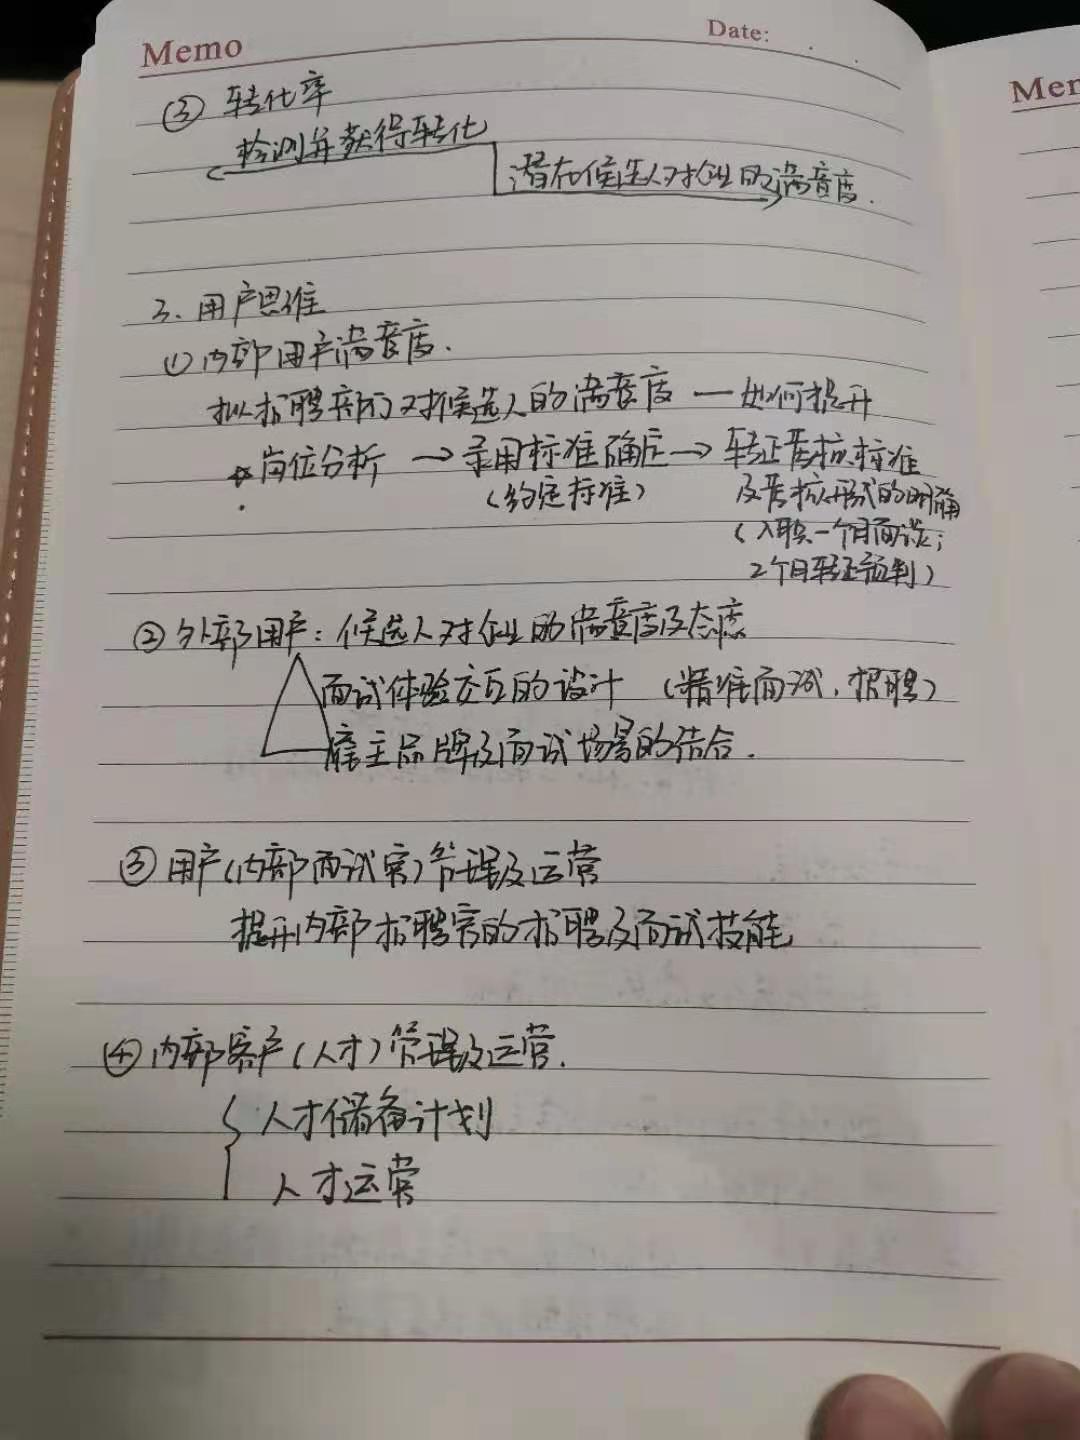 Memo
Date:
③ 转化率
检测并获得转化
潜在候选人对企业的满意度.
3、用户思维
① 内部用户满意度.
拟招聘部门对候选人的满意度 — 如何提升
岗位分析 → 录用标准确定 → 转正考核标准
(约定标准) 及考核形式的明确
(入职一个月面谈;
2个月转正预判)
② 外部用户: 候选人对企业的满意度及态度
面试体验交互的设计 (精准面试、招聘)
雇主品牌及面试场景的结合.
③ 用户(内部面试官)管理及运营
提升内部招聘官的招聘及面试技能
④ 内部客户(人才)管理及运营.
人才储备计划
人才运营